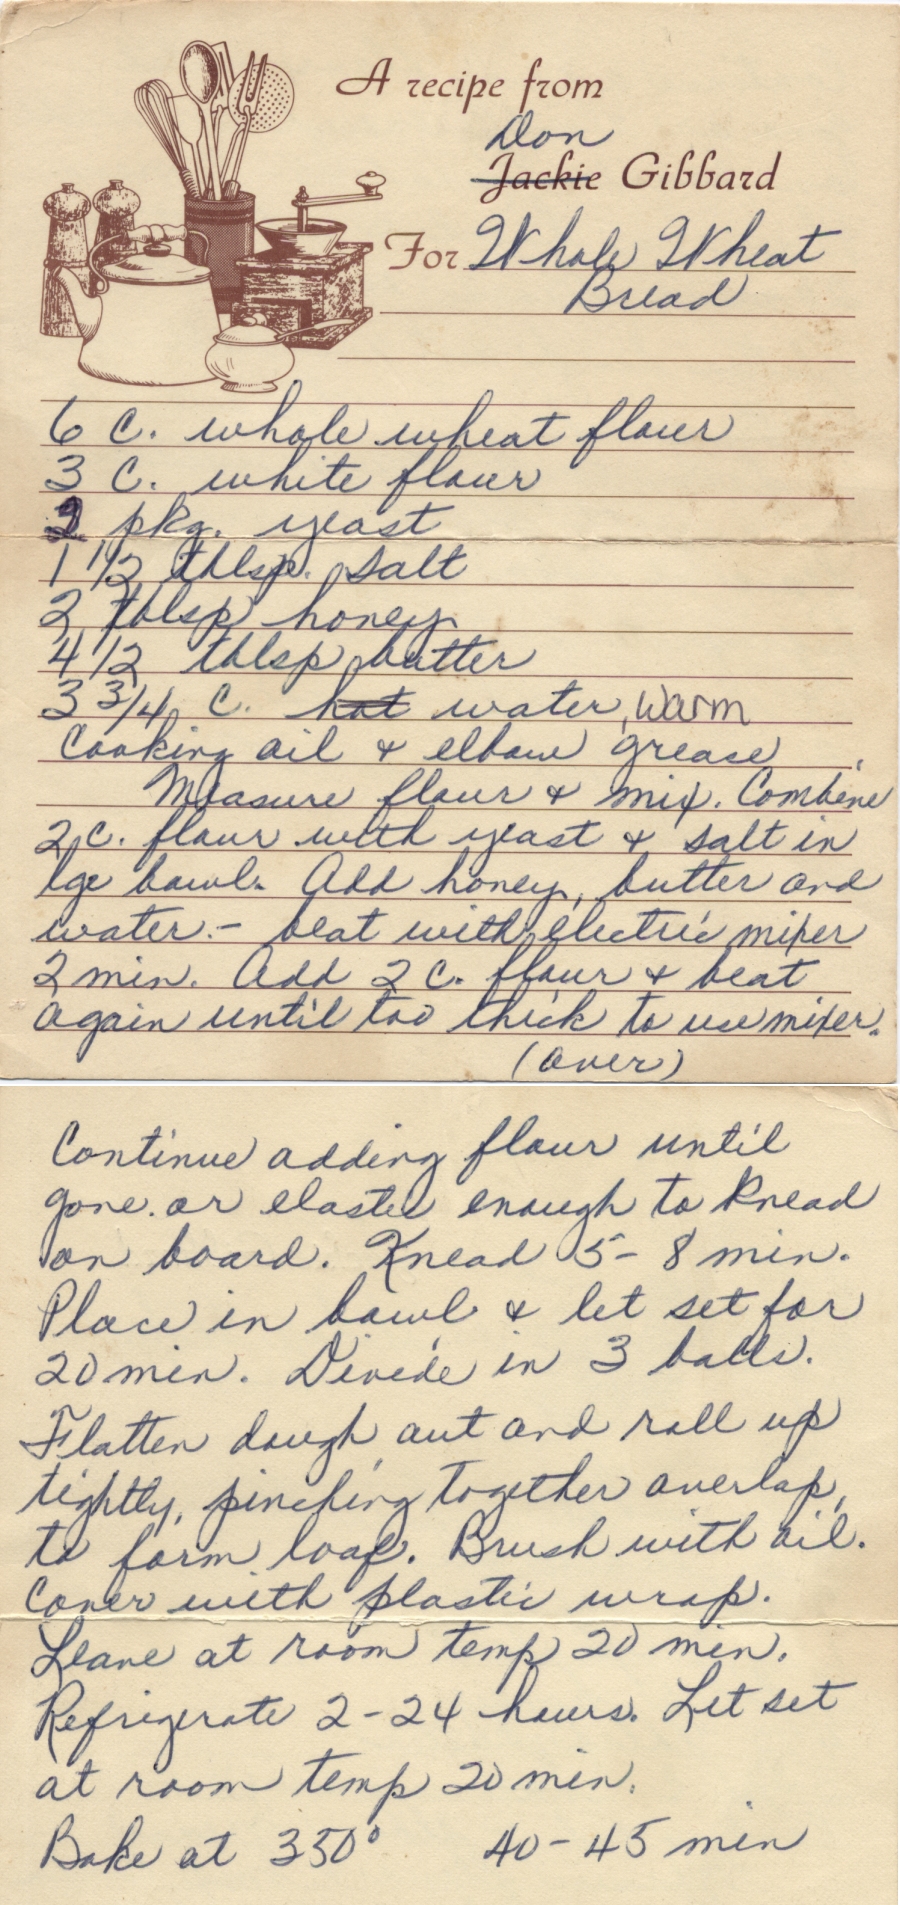 A recipe from
Don
Jackie Gibbard
For Whole Wheat
Bread
6 C. whole wheat flour
3 C. white flour
2 pkg. yeast
1 1/2 tblsp. salt
2 tblsp honey
4 1/2 tblsp butter
3 3/4 C. hot water, warm
Cooking oil & elbow grease
Measure flour & mix. Combine
2 C. flour with yeast & salt in
lge bowl. Add honey, butter and
water. - beat with electric mixer
2 min. Add 2 C. flour & beat
again until too thick to use mixer.
(over)
Continue adding flour until
gone or elastic enough to knead
on board. Knead 5-8 min.
Place in bowl & let set for
20 min. Divide in 3 balls.
Flatten dough out and roll up
tightly, pinching together overlap,
to form loaf. Brush with oil.
Cover with plastic wrap.
Leave at room temp 20 min.
Refrigerate 2-24 hours. Let set
at room temp 20 min.
Bake at 350° 40-45 min